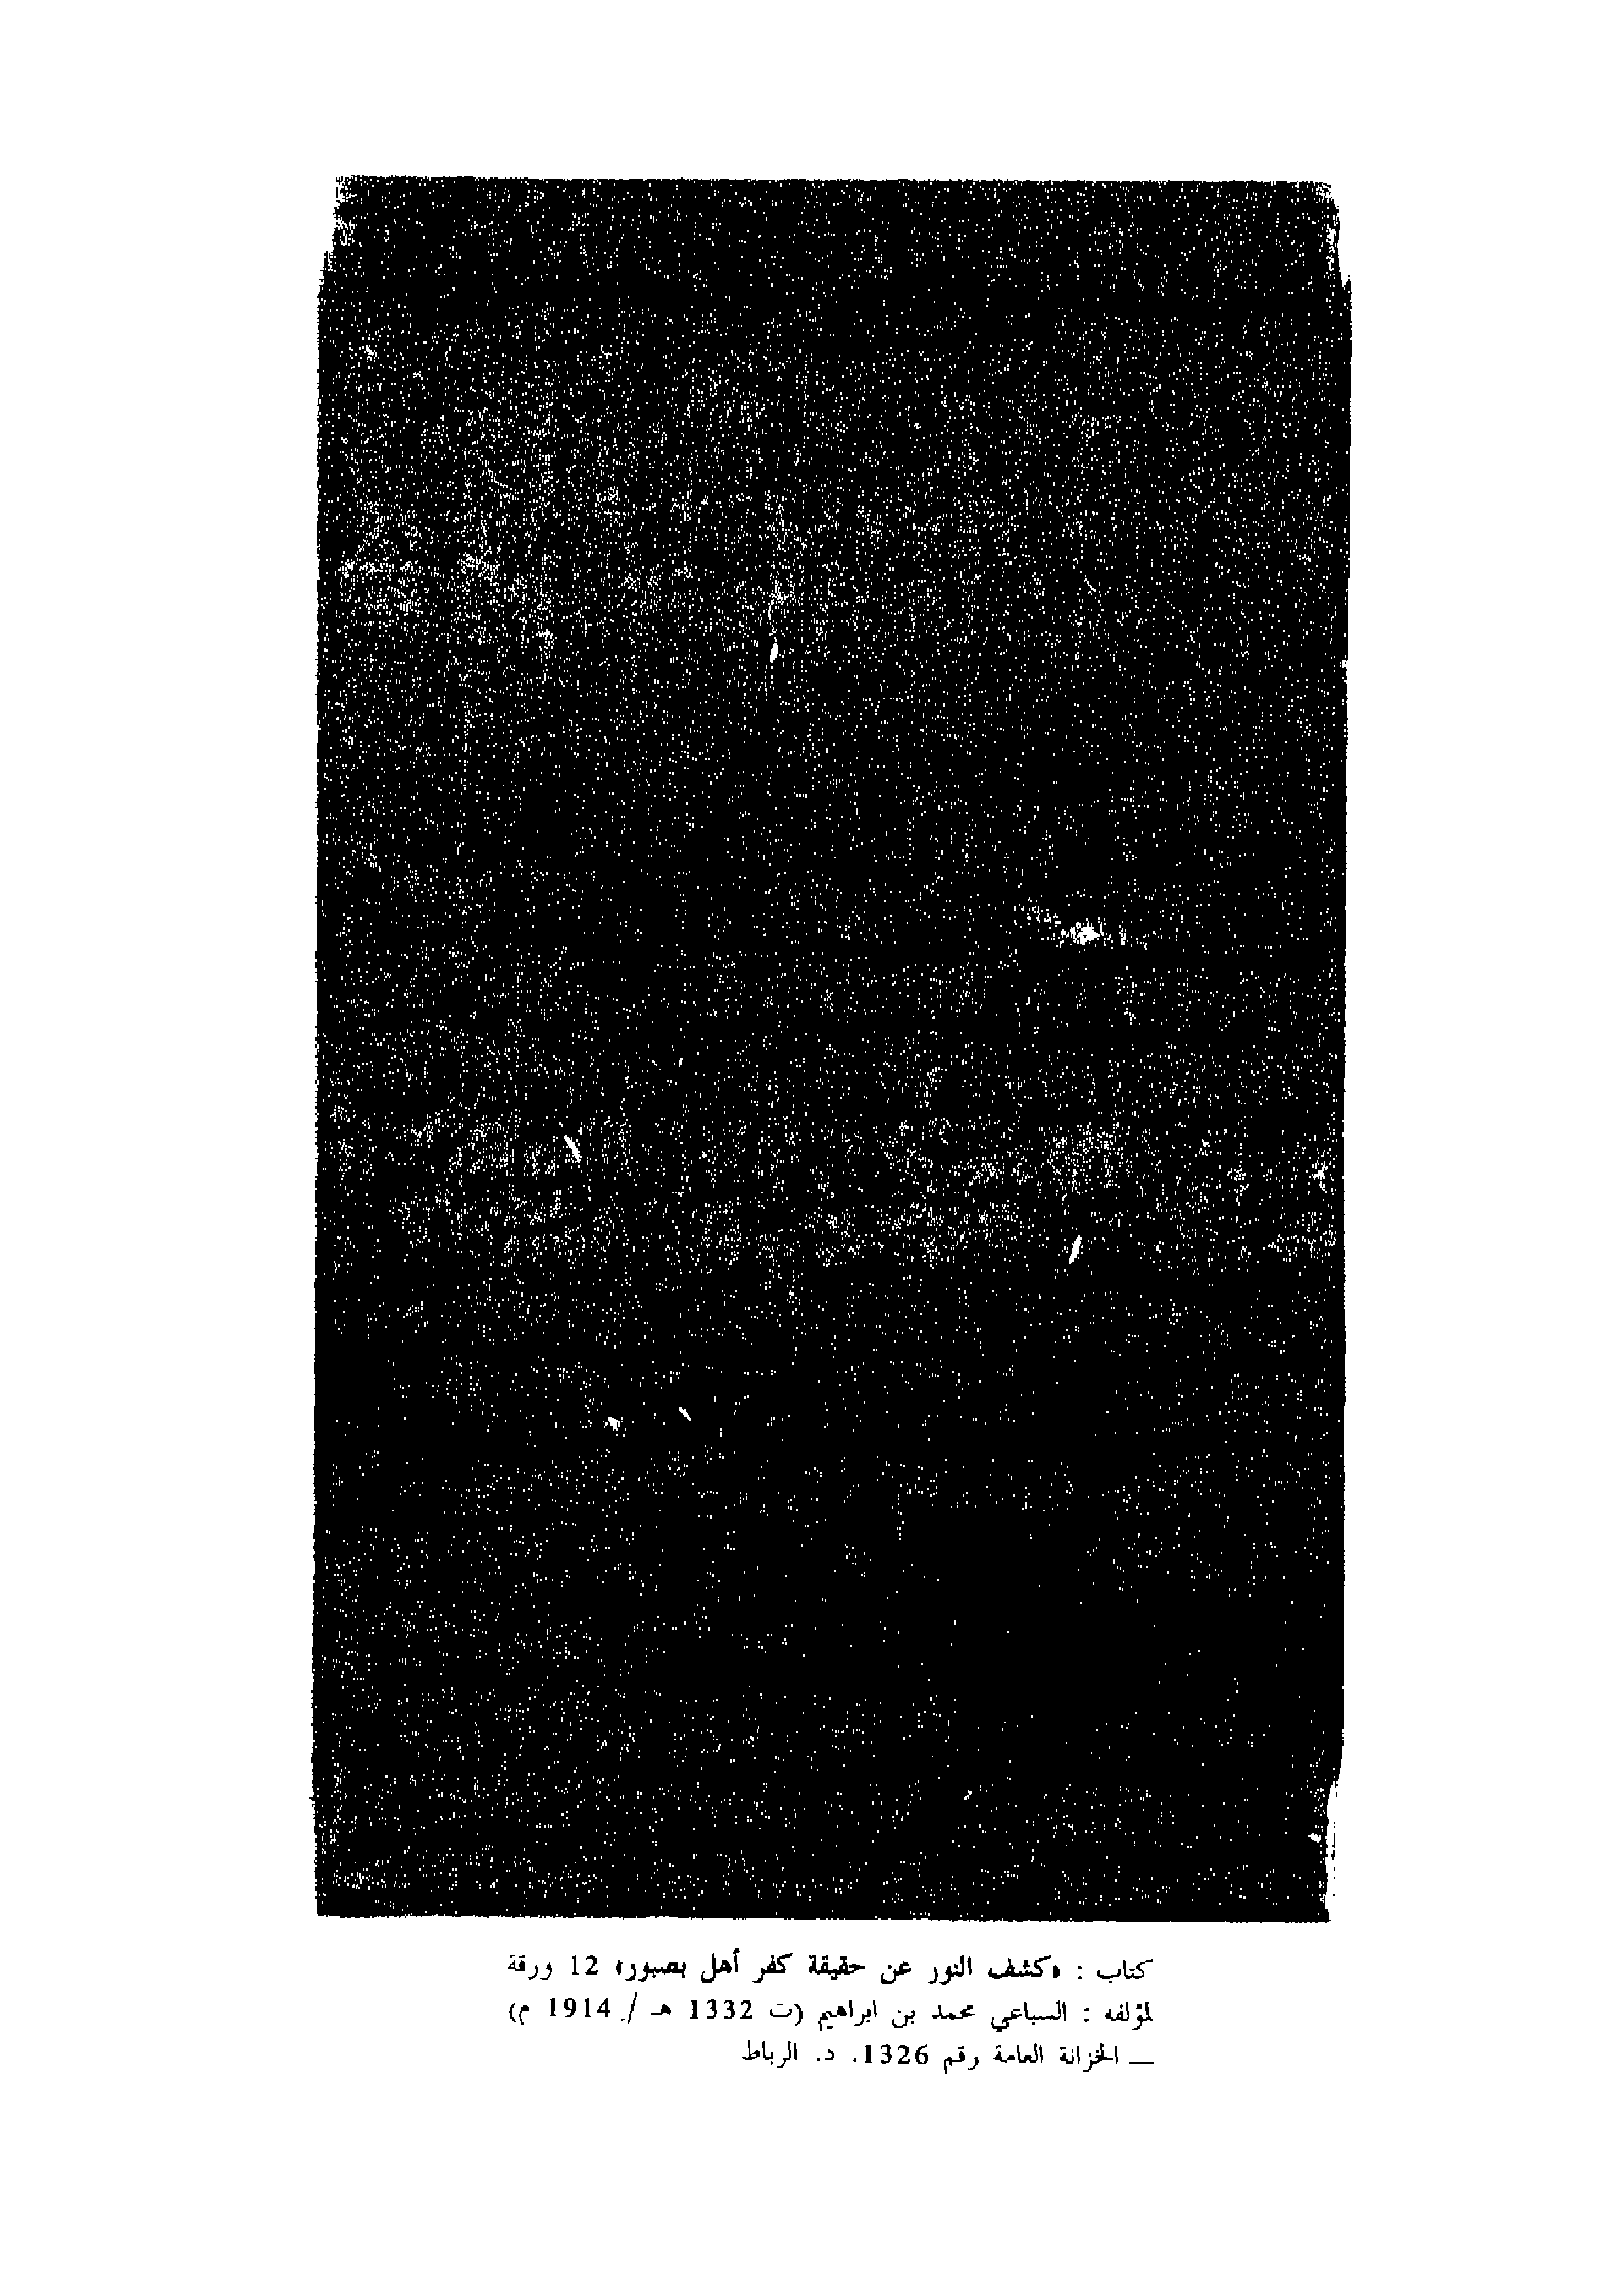 كتاب : «كشف النور عن حقيقة كفر أهل بصبور» 12 ورقة
لمؤلفه : السباعي محمد بن ابراهيم (ت 1332 هـ / 1914 م)
— الخزانة العامة رقم 1326. د. الرباط